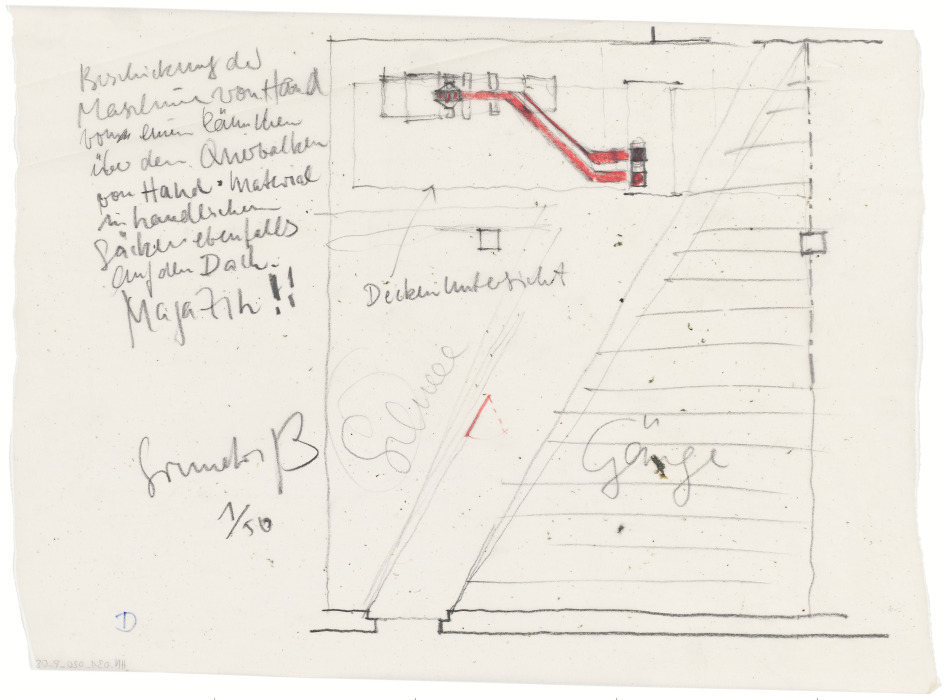 Beschickung der
Maschine von Hand
von einem
über dem Querbalken
von Hand. Material
in handlichen
Säcken ebenfalls
auf dem Dach.
Magazin!!
Deckenuntersicht
Gänge
Grundriß
1/50
D